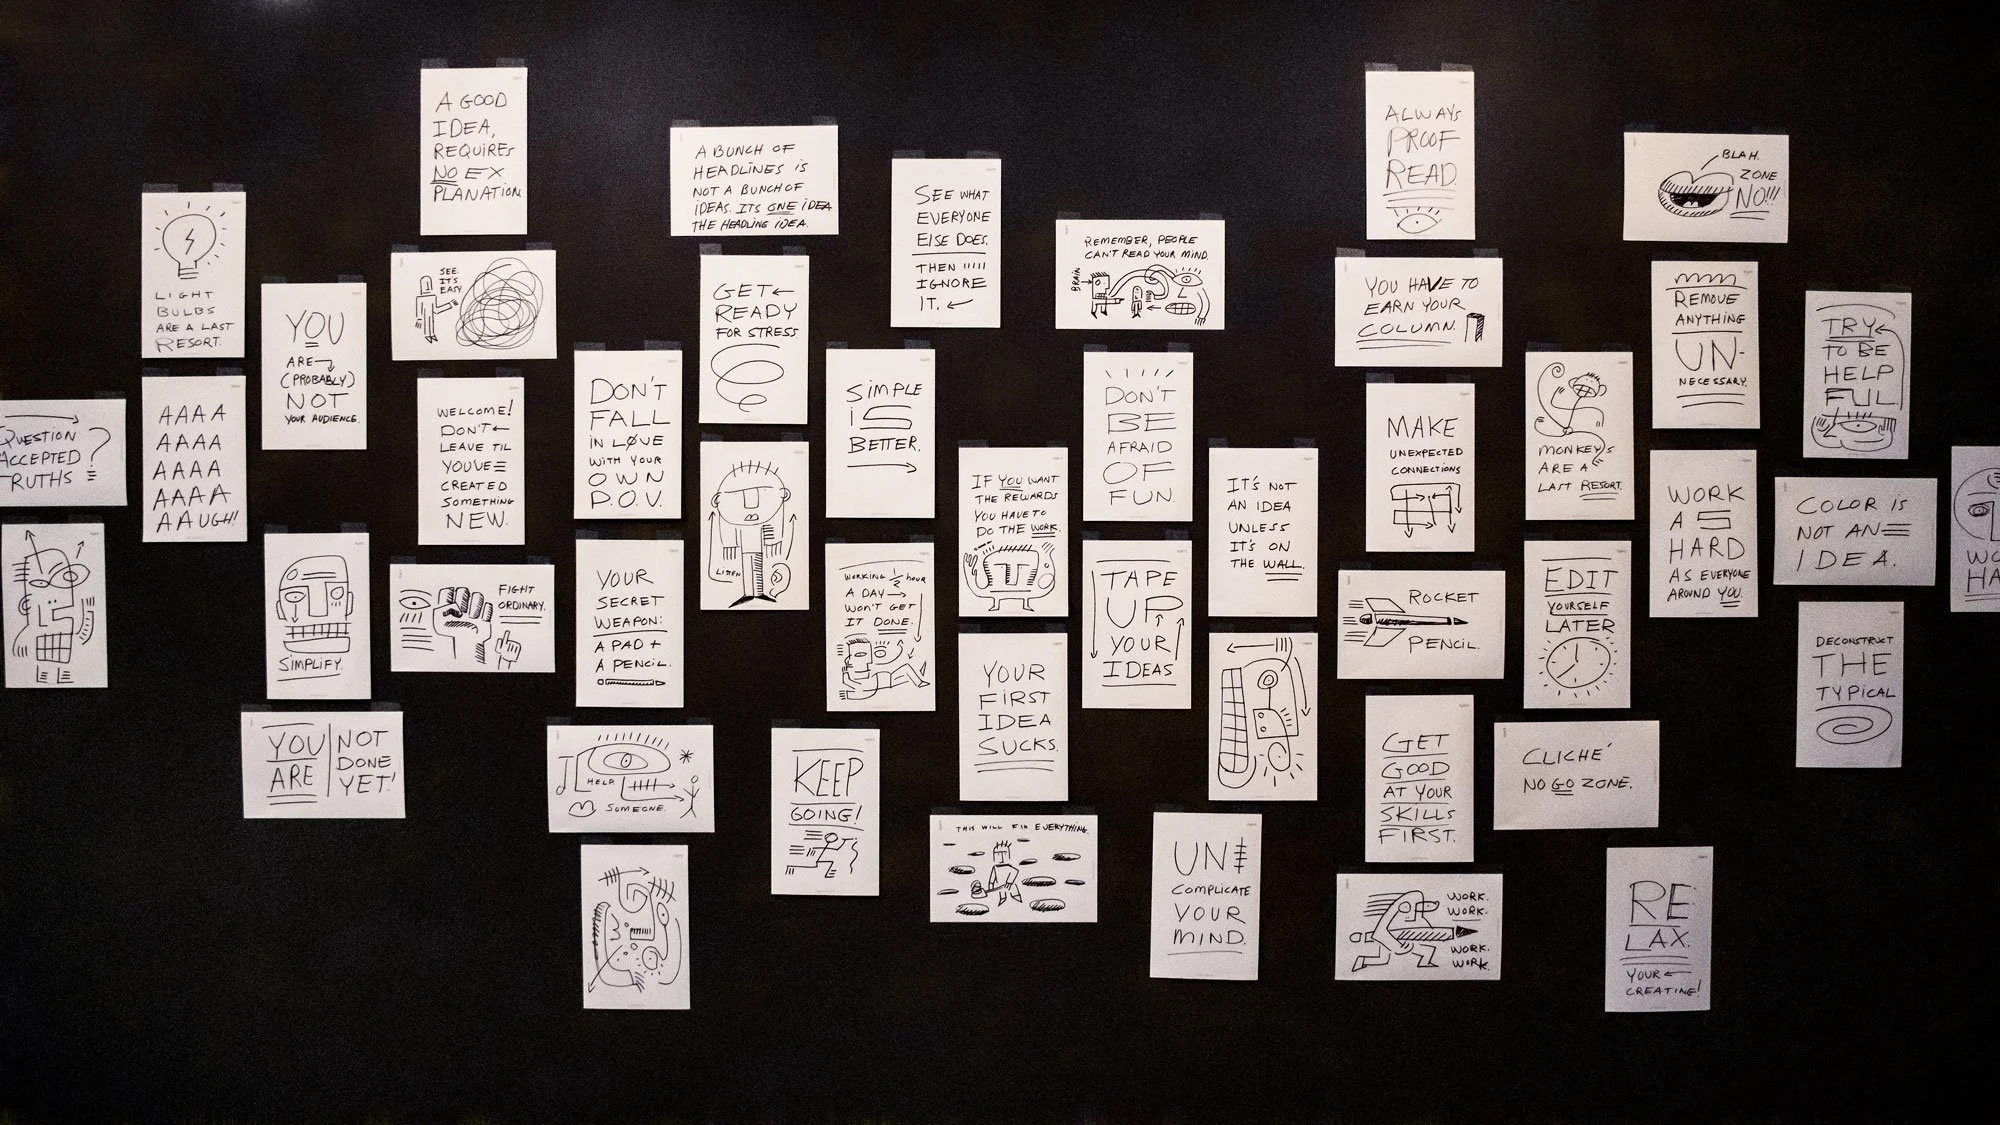 LIGHT
BULBS
ARE A LAST
RESORT.
QUESTION
ACCEPTED
TRUTHS ?
AAAA
AAAA
AAAA
AAAA
AAUGH!
YOU
ARE
(PROBABLY)
NOT
YOUR AUDIENCE.
SIMPLIFY.
YOU
ARE
NOT
DONE
YET!
A GOOD
IDEA,
REQUIRES
NO EX
PLANATION.
SEE.
IT'S
EASY.
WELCOME!
DON'T
LEAVE TIL
YOU'VE
CREATED
SOMETHING
NEW.
FIGHT
ORDINARY.
DON'T
FALL
IN LOVE
WITH YOUR
OWN
P.O.V.
YOUR
SECRET
WEAPON:
A PAD +
A PENCIL.
HELP
SOMEONE.
A BUNCH OF
HEADLINES IS
NOT A BUNCH OF
IDEAS. ITS ONE IDEA
THE HEADLING IDEA.
GET
READY
FOR STRESS
LISTEN
KEEP
GOING!
SIMPLE
IS
BETTER.
WORKING ½ HOUR
A DAY
WON'T GET
IT DONE.
SEE WHAT
EVERYONE
ELSE DOES.
THEN
IGNORE
IT.
IF YOU WANT
THE REWARDS
YOU HAVE TO
DO THE WORK.
YOUR
FIRST
IDEA
SUCKS.
THIS WILL FIX EVERYTHING.
REMEMBER, PEOPLE
CAN'T READ YOUR MIND.
BRAIN
DON'T
BE
AFRAID
OF
FUN.
TAPE
UP
YOUR
IDEAS
UN
COMPLICATE
YOUR
MIND.
IT'S NOT
AN IDEA
UNLESS
IT'S ON
THE WALL.
ALWAYS
PROOF
READ.
YOU HAVE TO
EARN YOUR
COLUMN.
MAKE
UNEXPECTED
CONNECTIONS
ROCKET
PENCIL.
GET
GOOD
AT YOUR
SKILLS
FIRST.
WORK.
WORK.
WORK.
WORK.
MONKEYS
ARE A
LAST RESORT.
EDIT
YOURSELF
LATER
CLICHÉ
NO GO ZONE.
RE
LAX.
YOUR
CREATING!
BLAH.
ZONE
NO!!!
REMOVE
ANYTHING
UN-
NECESSARY.
WORK
AS
HARD
AS EVERYONE
AROUND YOU.
TRY
TO BE
HELP
FUL
COLOR IS
NOT AN
IDEA.
DECONSTRUCT
THE
TYPICAL
WO
HA